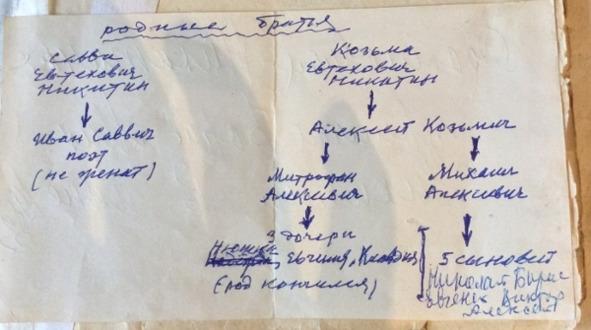 родные братья
Савви
Евтехович
Никитин
Иван Саввич
поэт
(не женат)
Козьма
Евтехович
Никитин
Алексей Козьмич
Митрофан
Алексеевич
3 дочери
Евгения, Клавдия
(род кончился)
Михаил
Алексеевич
5 сыновей
Николай Борис
Евгений Виктор
Алексей